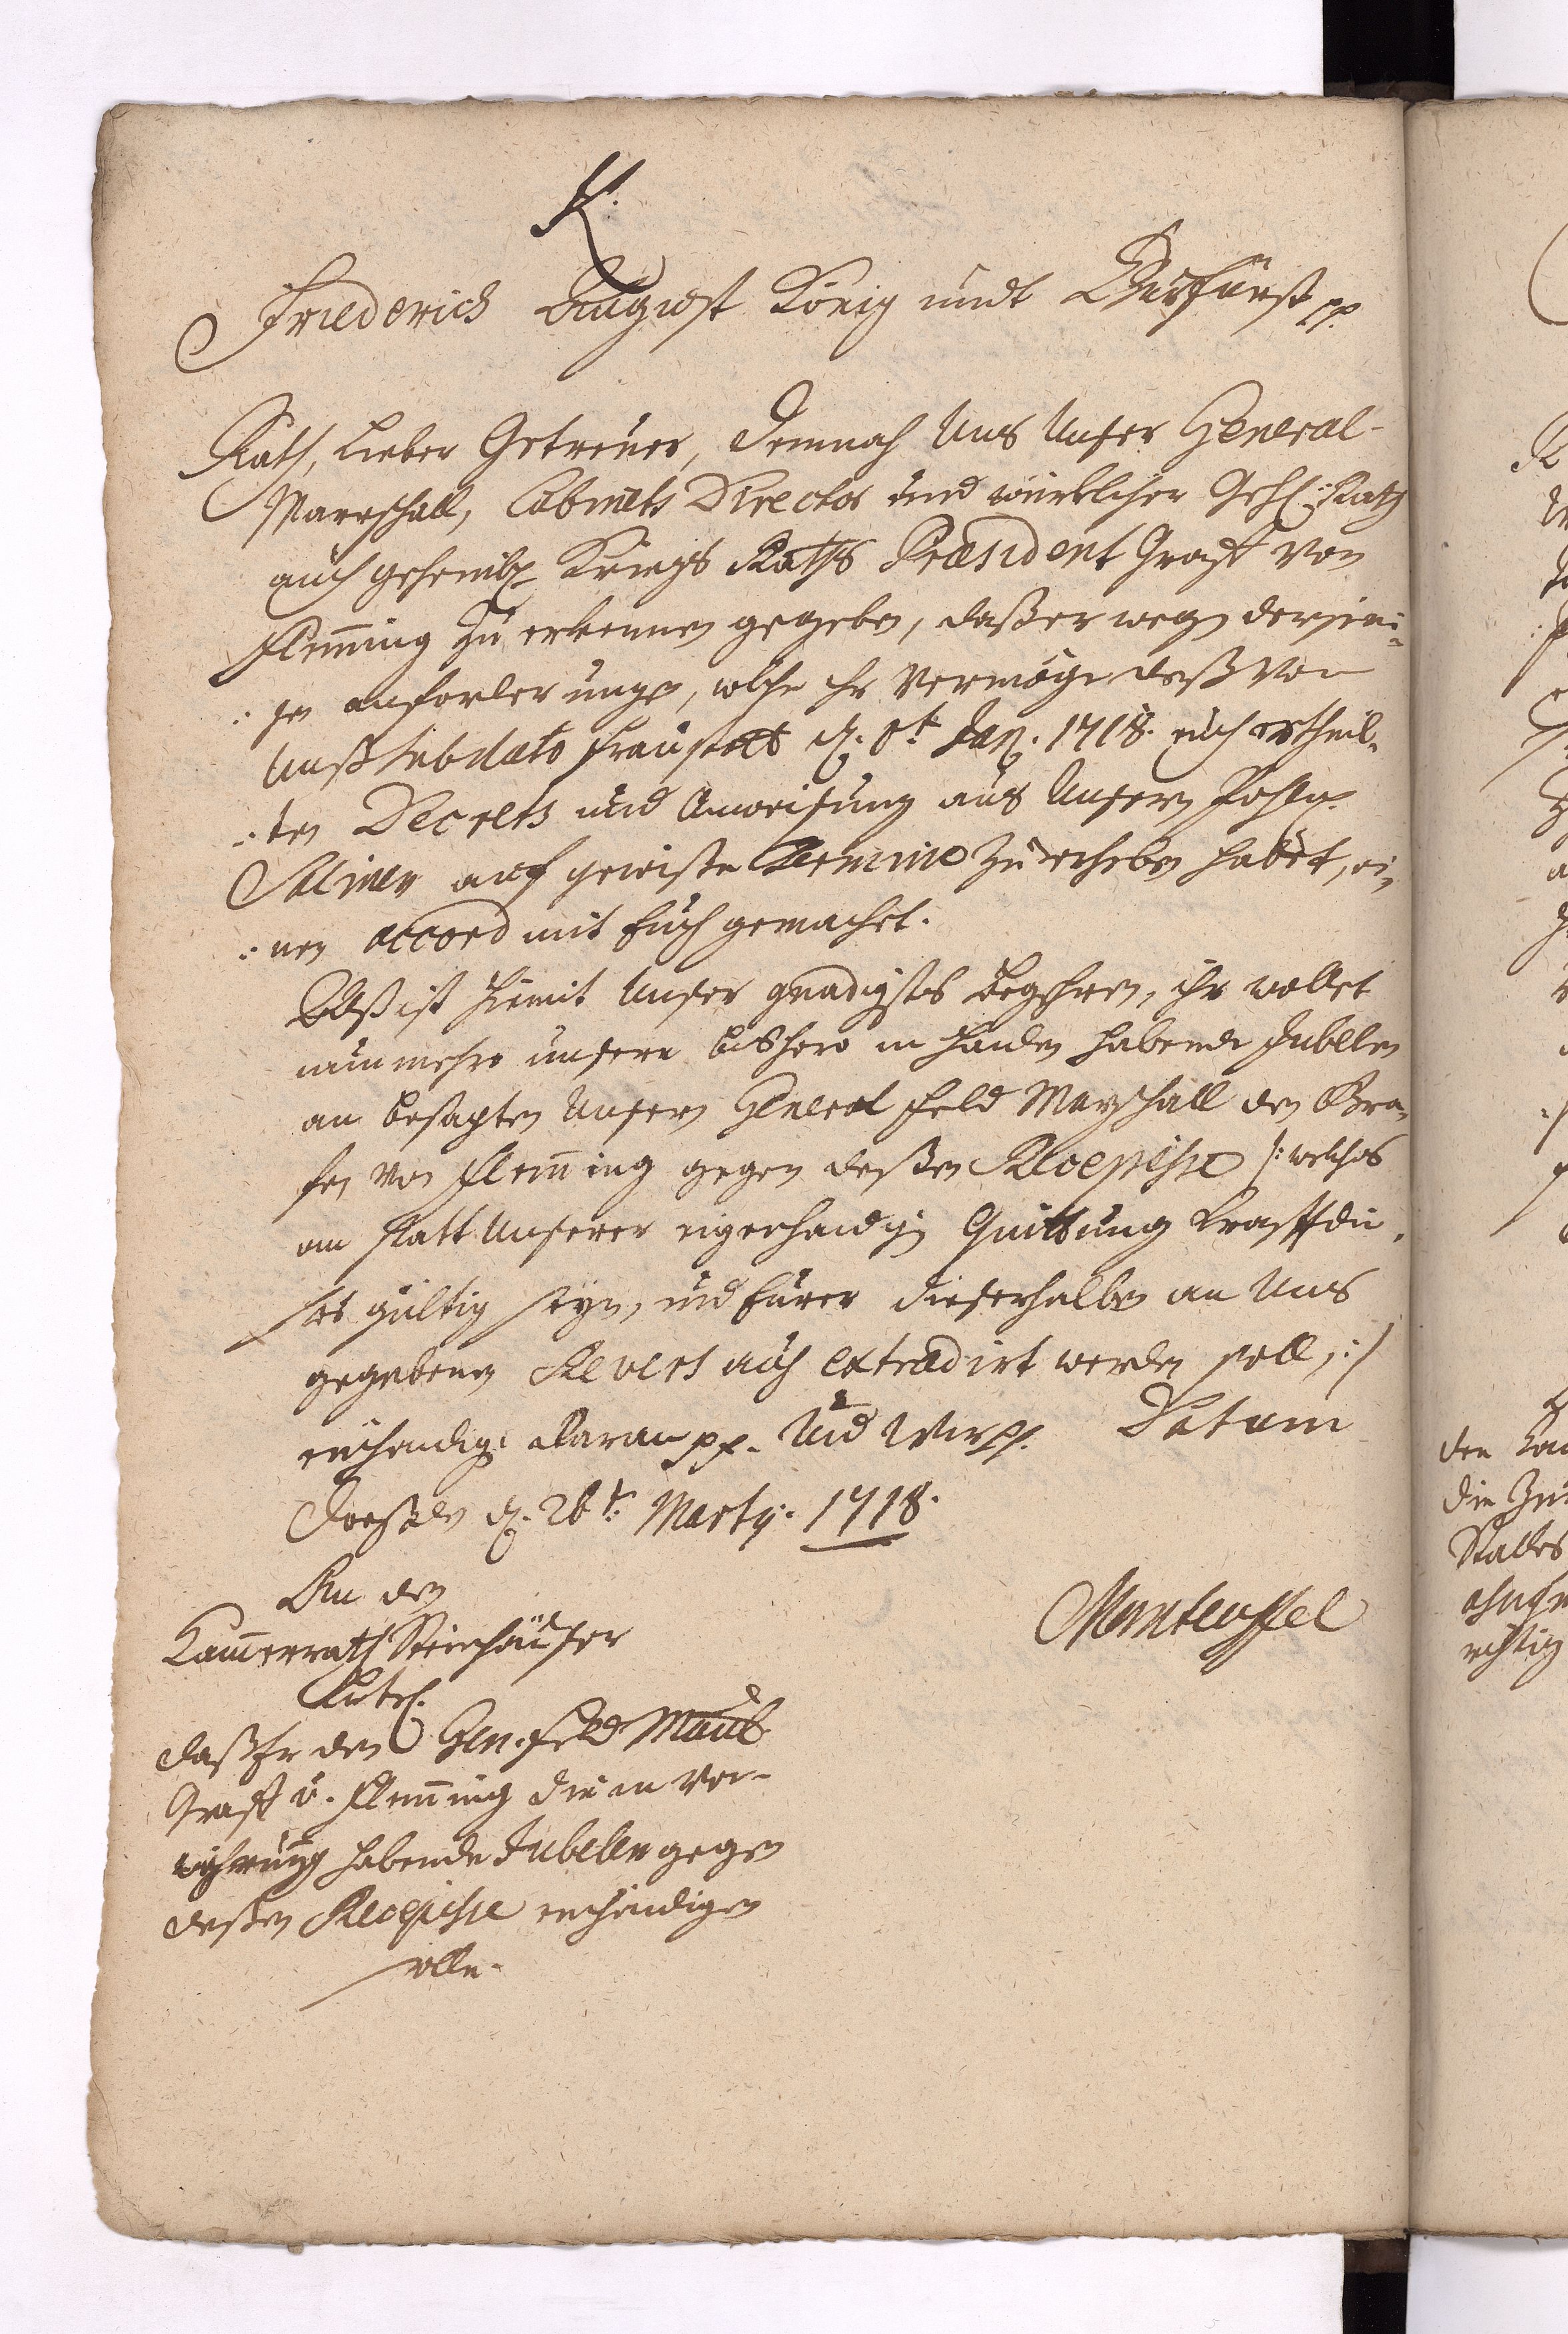 K.
Friederich August König undt Churfürst pp.
Rath, Lieber Getreuer, Demnach Uns Unser General-
Marschall, Cabinets Director und würcklicher Geh: Rath
auch geheimbd. Kriegs Raths Præsident Graff von
Flem̄ing zu erkennen gegeben, daß er wegen derjeni-
:gen anforderungen, welche ihr vermöge deß von
Unß sub dato Fraustatt d. 8t Jan. 1718. eüch ertheil-
:ten Decrets und Anweisung aus Unsern Pohln.
Salinen auf gewisse Termine zu erheben habet, ei-
:nen accord mit Euch gemachet.
Alß ist hiemit Unser gnädigstes Begehren, ihr wollet
nunmehro unsere bishero in Handen habende Jubelen
an besagten Unsern General Feld Marschall den Gra-
fen von Flem̄ing gegen deßen Recepisse /: welches
an statt Unserer eigenhändigen Quittung krafft die-
ses gültig seyn, und Eurer dieserhalben an Uns
gegebener Revers auch extradirt werden soll, :/
einhändigen daran pp. Und Wir pp. Datum
Dreßden d. 26t: Martÿ. 1718.
An den
Cammerrath Steinhäuser
Manteuffel
daß Er dem Gen. Feld
Graff v. Flem̄ing die in Ver-
wahrung habende Jubelen gegen
deßen Recepisse einhändigen
solle.
den
die
Stattes
ohn
richtig